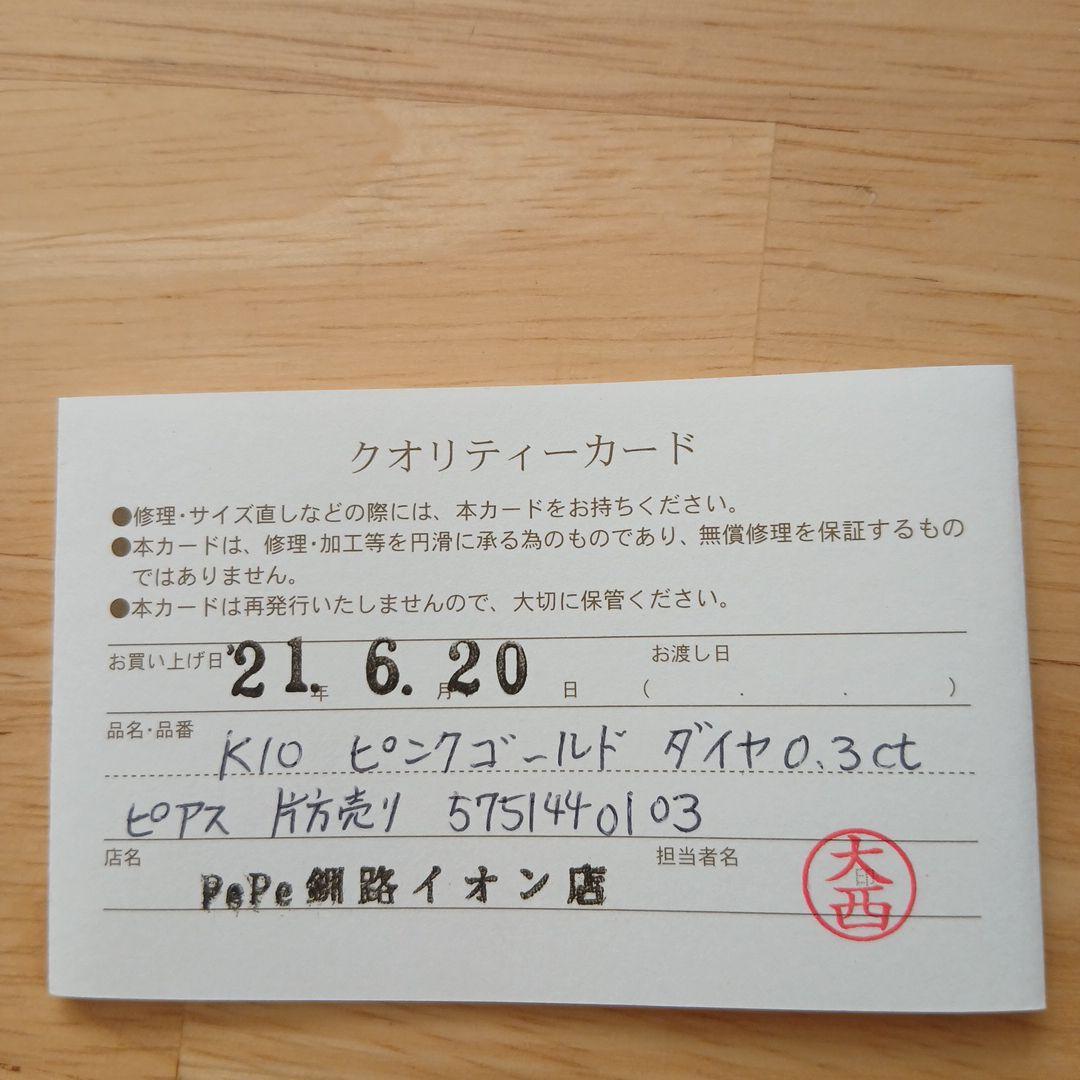 クオリティーカード
●修理・サイズ直しなどの際には、本カードをお持ちください。
●本カードは、修理・加工等を円滑に承る為のものであり、無償修理を保証するもの
ではありません。
●本カードは再発行いたしませんので、大切に保管ください。
お買い上げ日 '21.年 6.月 20 日 お渡し日 ( . . )
品名・品番 K10 ピンクゴールド ダイヤ0.3ct
ピアス 片方売り 5751440103
店名 PePe釧路イオン店 担当者名 印 大西